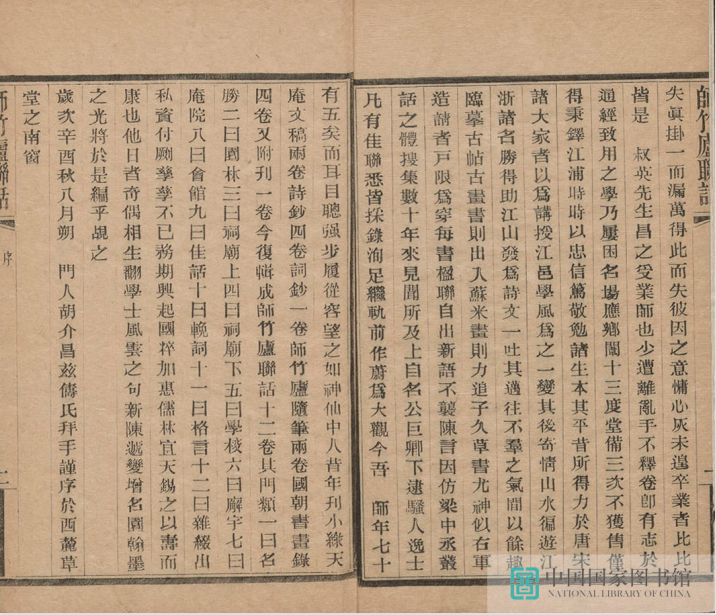 師竹廬聯話
失眞掛一而漏萬得此而失彼因之意慵心灰未遑卒業者比比
皆是　叔英先生昌之受業師也少遭離亂手不釋卷卽有志於
通經致用之學乃屢困名場應鄉闈十三度堂備三次不獲售僅
得秉鐸江浦時時以忠信篤敬勉諸生本其平昔所得力於唐宋
諸大家者以爲講授江邑學風爲之一變其後寄情山水徧遊江
浙諸名勝得助江山發爲詩文一吐其邁往不羣之氣間以餘趣
臨摹古帖古畫書則出入蘇米畫則力追子久草書尤神似右軍
造請者戸限爲穿每書楹聯自出新語不襲陳言因仿梁中丞叢
話之體搜集數十年來見聞所及上自名公巨卿下逮騷人逸士
凡有佳聯悉皆採錄洵足繼軌前作蔚爲大觀今吾　師年七十
有五矣而耳目聰强步履從容望之如神仙中人昔年刋小綠天
庵文稿兩卷詩鈔四卷詞鈔一卷師竹廬隨筆兩卷國朝書畫錄
四卷又附刋一卷今復輯成師竹廬聯話十二卷其門類一曰名
勝二曰園林三曰祠廟上四曰祠廟下五曰學校六曰廨宇七曰
庵院八曰會館九曰佳話十曰輓詞十一曰格言十二曰雜綴出
私資付剞孳孳不已務期興起國粹加惠儒林宜天錫之以壽而
康也他日者奇偶相生翻學士風雲之句新陳遞變增名園翰墨
之光將於是編乎覘之
歲次辛酉秋八月朔　門人胡介昌兹儔氏拜手謹序於西麓草
堂之南窗
師竹廬聯話
序
二
中国国家图书馆
NATIONAL LIBRARY OF CHINA